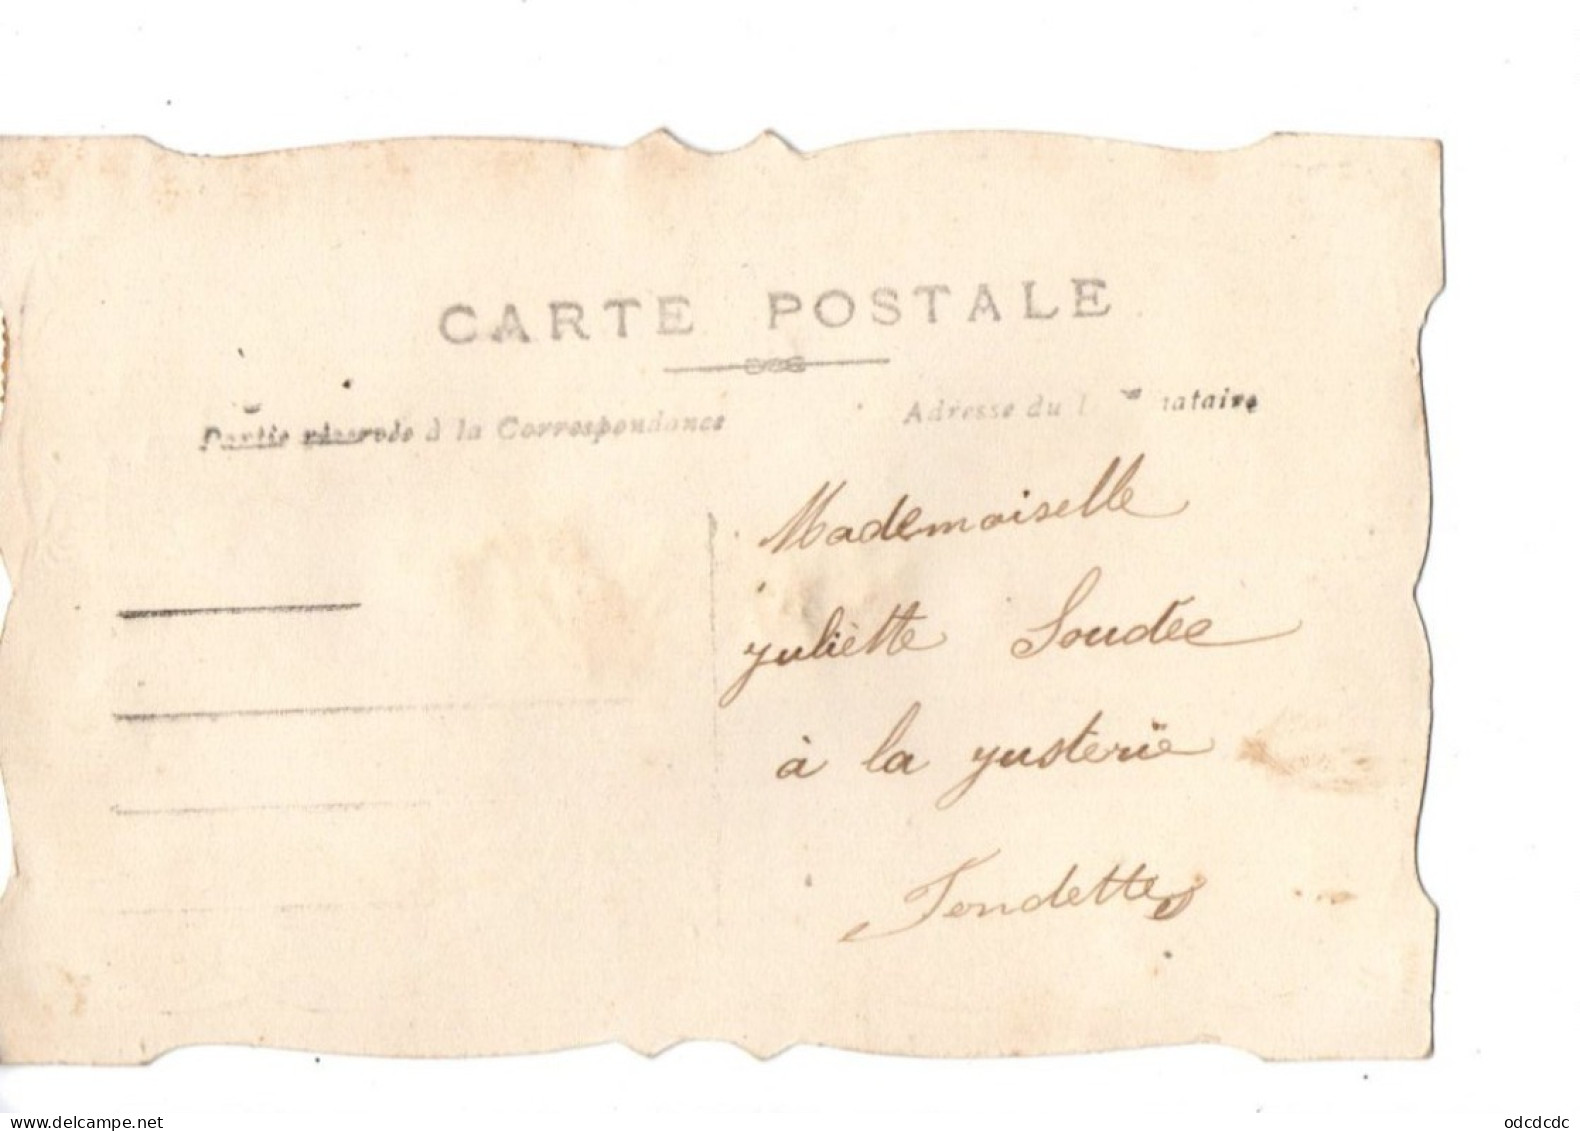 CARTE POSTALE
Partie réservée à la Correspondance
Adresse du nataire
Mademoiselle
juliètte Soudée
à la justerie
Fondettes
www.delcampe.net
odcdcdc